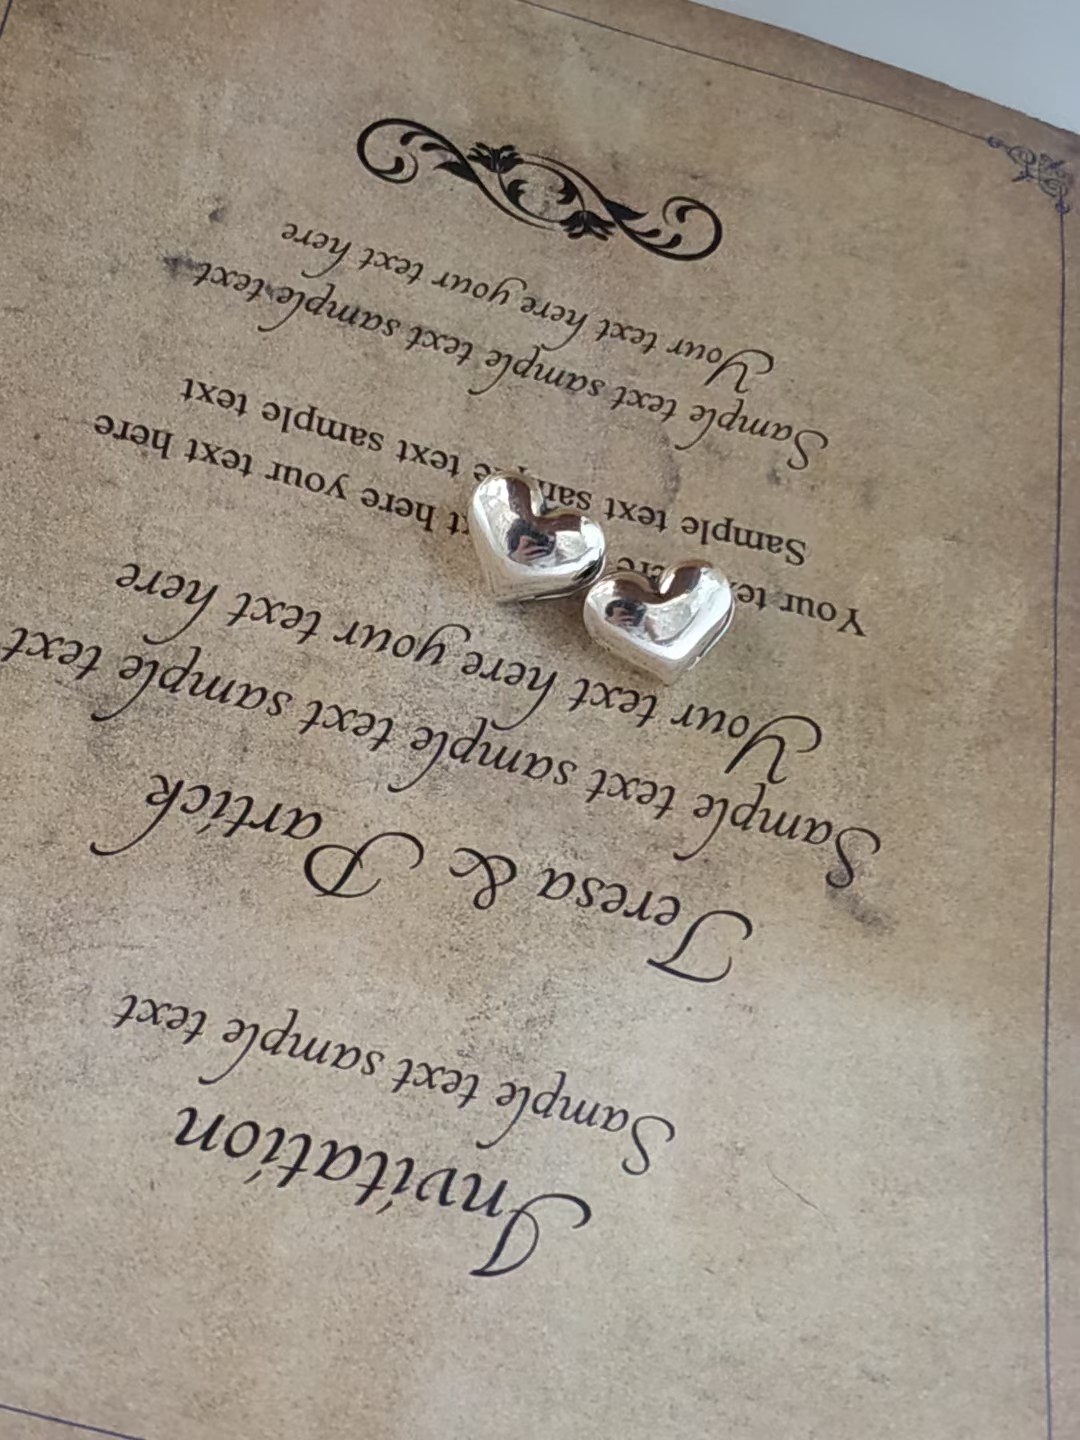 Invitation
Sample text sample text
Teresa & Partick
Sample text sample text sample text
Your text here your text here
Your text here your text here
Sample text sample text sample text
Sample text sample text sample text
Your text here your text here